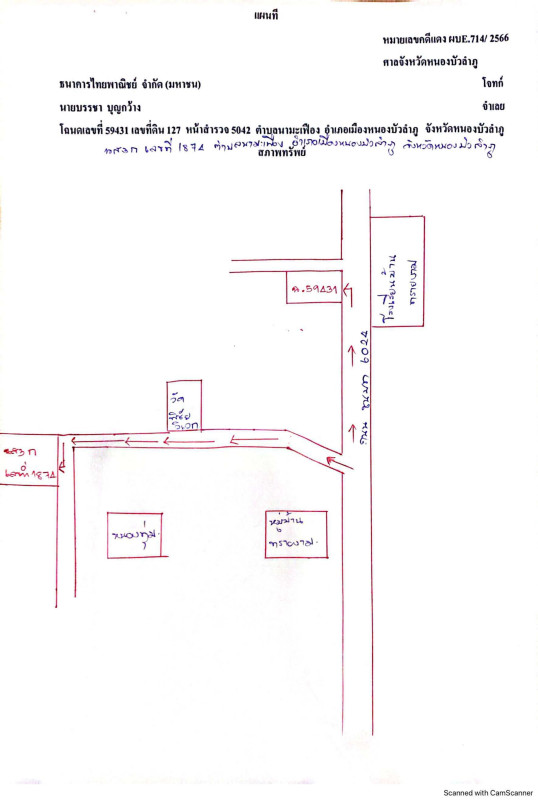 แผนที่
หมายเลขคดีแดง ผบE.714/ 2566
ศาลจังหวัดหนองบัวลำภู
ธนาคารไทยพาณิชย์ จำกัด (มหาชน) โจทก์
นายบรรชา บุญกว้าง จำเลย
โฉนดเลขที่ 59431 เลขที่ดิน 127 หน้าสำรวจ 5042 ตำบลนามะเฟือง อำเภอเมืองหนองบัวลำภู จังหวัดหนองบัวลำภู
นส3ก เลขที่ 1874 ตำบลนามะเฟือง อำเภอเมืองหนองบัวลำภู จังหวัดหนองบัวลำภู
สภาพทรัพย์
โรงเรียนบ้าน
ทรายงาม
ฉ.59431
ถนน ชนบท 6024
วัด
พิชัย
วิเวก
นส3 ก
เลขที่ 1874
หนองทุ่ม
หมู่บ้าน
ทรายงาม
Scanned with CamScanner